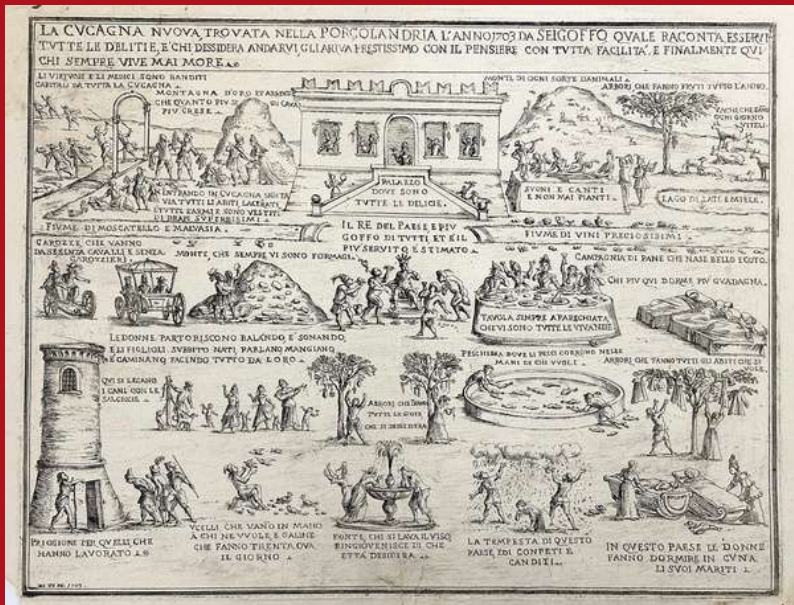 LA CVCAGNA NUOVA, TROVATA NELLA PORCOLANDRIA L'ANNO 1703 DA SEIGOFFO QUALE RACONTA, ESSERVI
TVTTE LE DELITIE, E CHI DESSIDERA ANDARVI, GLI ARIVA PRESTISSIMO CON IL PENSIERE CON TVTTA FACILITÀ. E FINALMENTE QVI
CHI SEMPRE VIVE MAI MORE.
LI VIRTVOSI E LI MEDICI SONO BANDITI
CAPITALI DA TVTTA LA CVCAGNA
MONTAGNA D'ORO ET ARGENTO
CHE QVANTO PIV SI CAVA
PIV CRESE.
MONTE DI OGNI SORTE D'ANIMALI
ARBORI, CHE FANNO FRVTI TVTTO L'ANNO.
VACHE CHE FANO
OGNI GIORNO
VITELI.
PALAZZO
DOVE SONO
TVTTE LE DELICIE.
ENTRANDO IN CVCAGNA SI GITA
VIA TVTTI LI ABITI LACERATI,
ET VTTE L'ARMI, E SONO VESTITI
DI DRAPI SVPERBISSIMI.
SVONI E CANTI
E NON MAI PIANTI.
LAGO DI LATE E MIELE.
FIVME DI MOSCATELLO E MALVASIA
IL RE DEL PAESE, E PIV
GOFFO DI TVTTI, ET È IL
PIV SERVITO, E STIMATO
FIVME DI VINI PRECIOSISIMI.
CAROZZE, CHE VANNO
DA SE SENZA CAVALLI E SENZA
CAROZZIERI
MONTE, CHE SEMPRE VI SONO FORMAGI
CAMPAGNIA DI PANE CHE NASE BELLO E COTO.
CHI PIV QVI DORME PIV GVADAGNA.
TAVOLA SEMPRE APARECHIATA
CHE VI SONO TVTTE LE VIVANDE
LE DONNE PARTORISCONO BALANDO, E SONANDO,
E LI FIGLIOLI SVBBITO NATI, PARLANO, MANGIANO
E CAMINANO FACENDO TVTTO DA LORO
PESCHIERA DOVE LI PESCI CORRONO NELLE
MANI DE CHI VVOLE
ARBORI CHE FANNO TVTTI GLI ABITI CHE SI
VOLE
QVI SI LEGANO
I CANI CON LE
SALCICIE
ARBORI CHE FANNO
TVTTE LE GIOIE
CHE SI DESSIDERA
PRIGIONE PER QVELLI, CHE
HANNO LAVORATO
VCELLI CHE VANO IN MANO
A CHI NE VVOLE, E GALINE
CHE FANNO TRENTA OVA
IL GIORNO
FONTE, CHI SI LAVA IL VISO,
RINGIOVENISCE DI CHE
ETTÀ DESIDERA
LA TEMPESTA DI QVESTO
PAESE, E DI CONFETI E
CANDITI
IN QVESTO PAESE LE DONNE
FANNO DORMIRE IN CVNA
LI SVOI MARITI